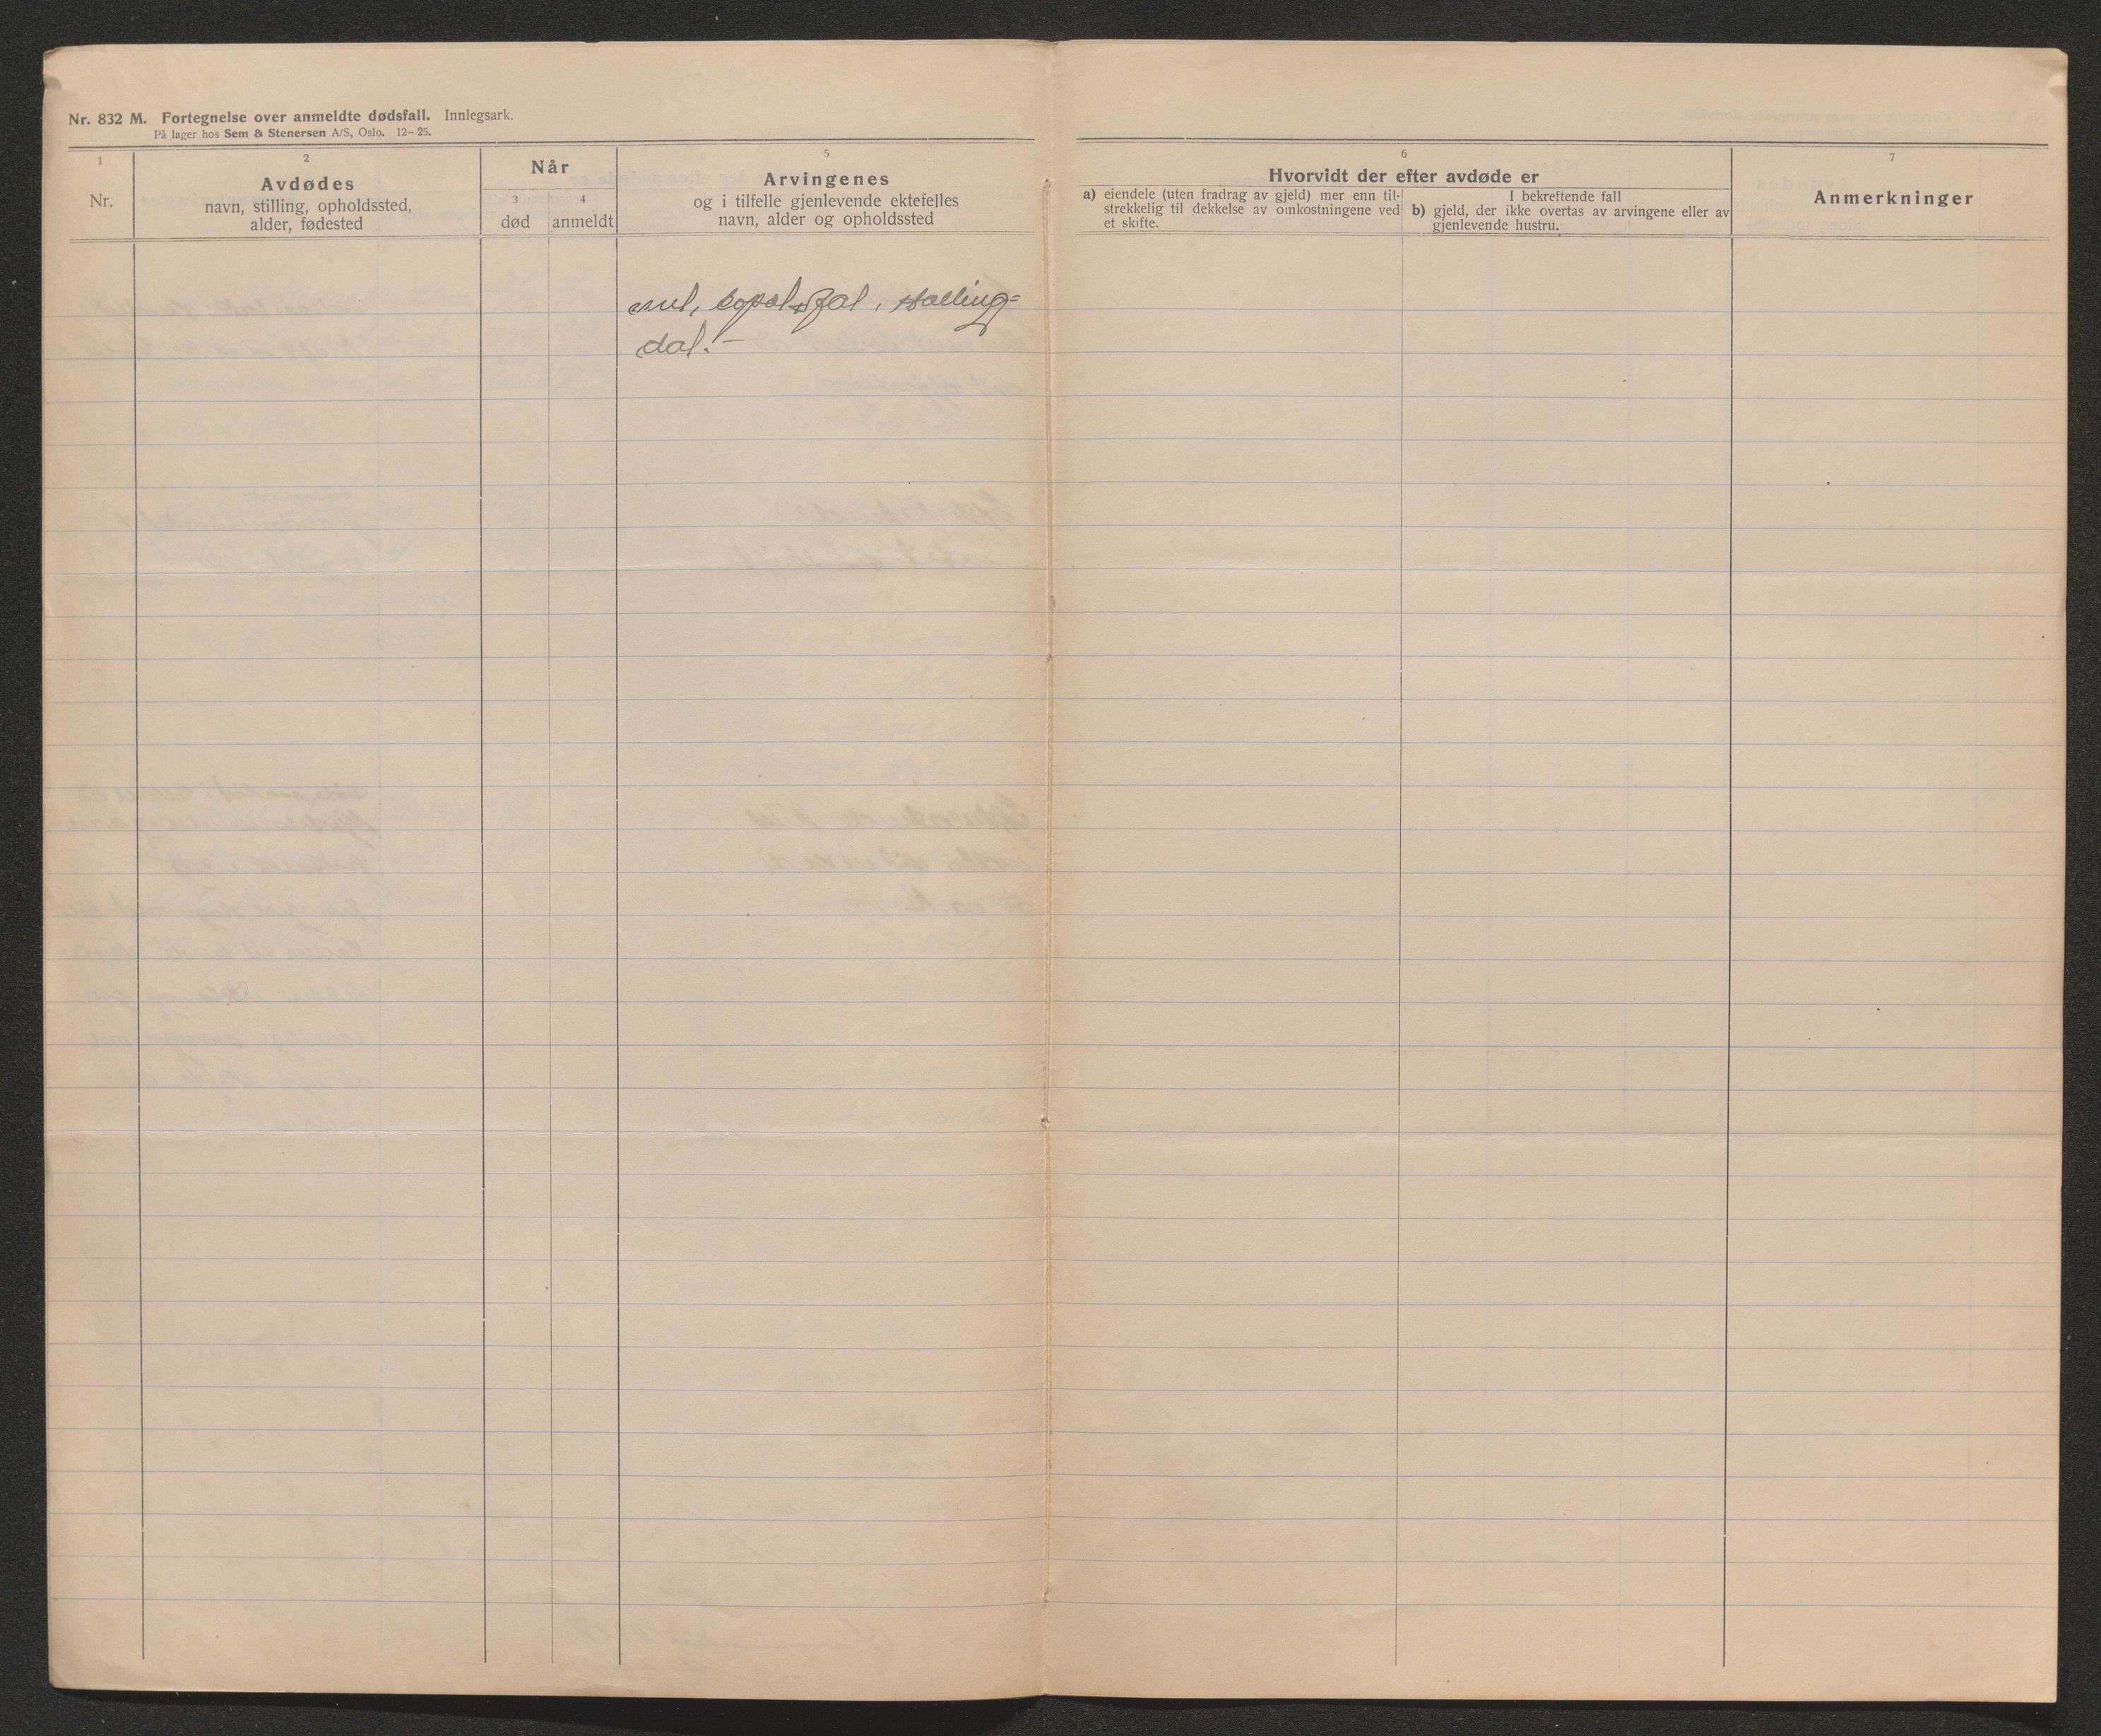 Nr. 832 M. Fortegnelse over anmeldte dødsfall. Innlegsark.
På lager hos Sem & Stenersen A/S, Oslo. 12-25.
1
Nr.
2
Avdødes
navn, stilling, opholdssted,
alder, fødested
Når
3
død
4
anmeldt
5
Arvingenes
og i tilfelle gjenlevende ektefelles
navn, alder og opholdssted
6
Hvorvidt der efter avdøde er
a) eiendele (uten fradrag av gjeld) mer enn til-
strekkelig til dekkelse av omkostningene ved
et skifte.
I bekreftende fall
b) gjeld, der ikke overtas av arvingene eller av
gjenlevende hustru.
7
Anmerkninger
Halling=
dal.-